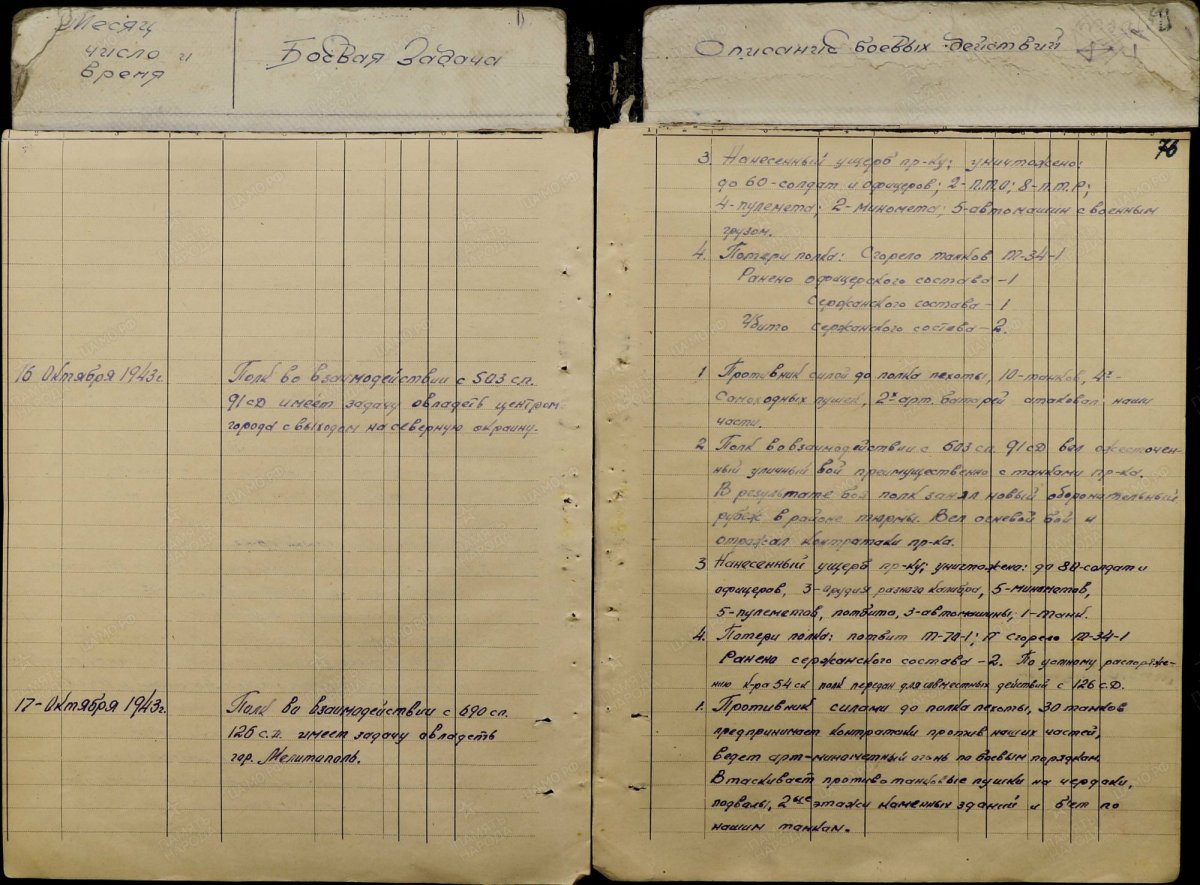 Месяц
число и
время
Боевая Задача
16 Октября 1943г.
Полк во взаимодействии с 503 сп.
91 сД имеет задачу овладеть центром
города с выходом на северную окраину.
17-Октября 1943г.
Полк во взаимодействии с 690 сп.
126 с.д. имеет задачу овладеть
гор. Мелитополь.
Описание боевых действий
76
3. Нанесенный ущерб пр-ку: уничтожено:
до 60-солдат и офицеров; 2-П.Т.О; 8-П.Т.Р;
4-пулемета; 2-миномета; 5-автомашин с военным
грузом.
4. Потери полка: Сгорело танков Т-34-1
Ранено офицерского состава-1
Сержанского состава-1
Убито сержанского состава-2.
1. Противник силой до полка пехоты, 10-танков, 4х-
Самоходных пушек, 2х арт. батарей атаковал наши
части.
2 Полк во взаимодействии с 503 сп. 91 сД вел ожесточен-
ный уличный бой преимущественно с танками пр-ка.
В результате боя полк занял новый оборонительный
рубеж в районе тюрмы. Вел огневой бой и
отражал контратаки пр-ка.
3 Нанесенный ущерб пр-ку; уничтожено: до 80-солдат и
офицеров, 3-орудия разного калибра, 5-минометов,
5-пулеметов, потбито, 3-автомашины, 1-танк.
4. Потери полка: потбит Т-70-1; сгорело Т-34-1
Ранено сержанского состава-2. По устному распоряже-
нию к-ра 54 ск полк передан для совместных действий с 126 с.Д.
1. Противник силами до полка пехоты, 30 танков
предпринимает контратаки против наших частей,
Ведет арт-минометный огонь по боевым порядкам.
Втаскивает противотанковые пушки на чердаки,
подвалы, 2ые этажи каменных зданий и бьет по
нашим танкам.